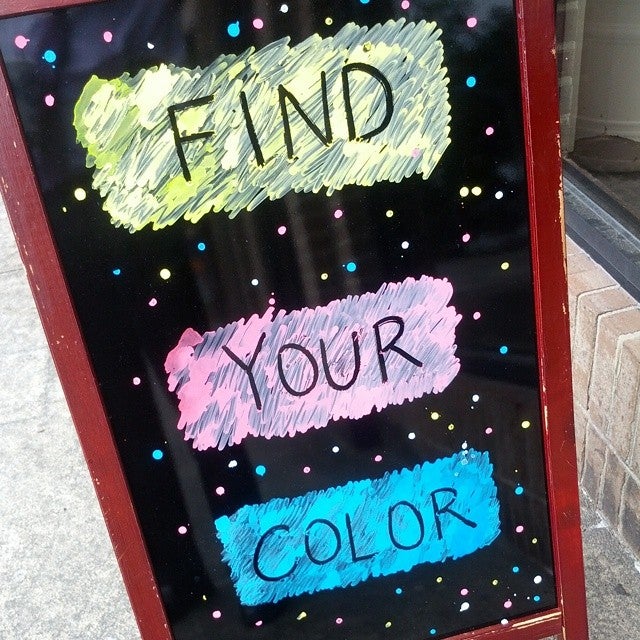 FIND
YOUR
COLOR